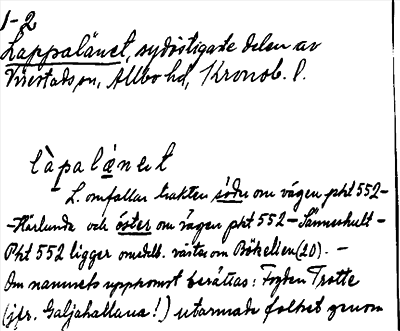 1-2
Lappalänet, sydöstigaste delen av
Virestads sn, Allbo hd, Kronob. l.
làpalǝnet
L. omfattar trakten söder om vägen pkt 552-
-Härlunda och öster om vägen pkt 552 - Sännershult -
Pkt 552 ligger omedelb. väster om Bökellien (20). -
Om namnets uppkomst berättas: Fogden Trotte
(jfr. Galjahallarna!) utarmade folket genom